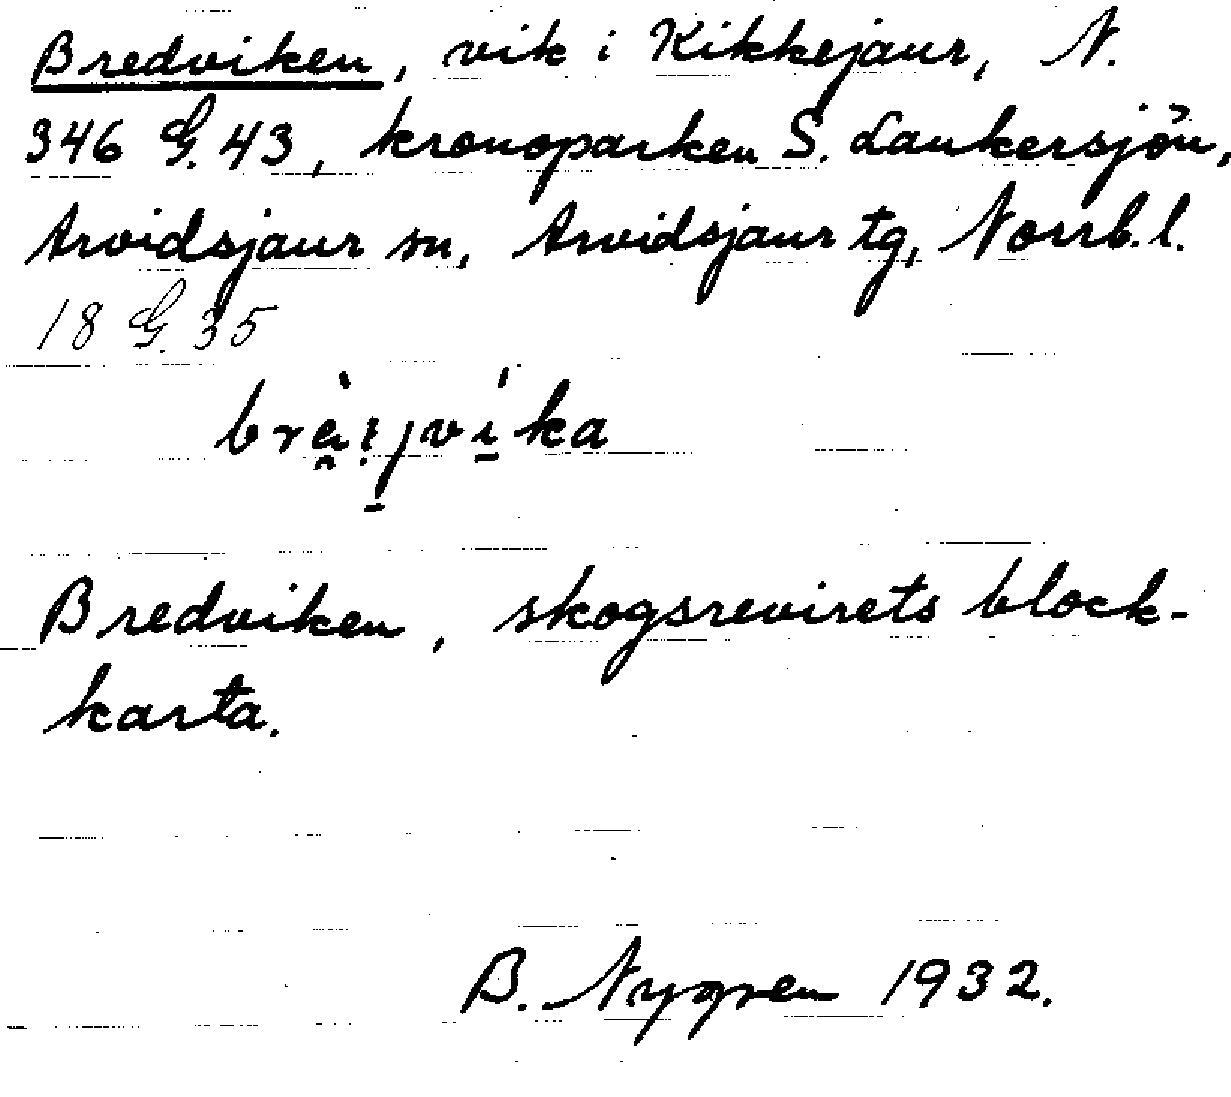 Bredviken, vik i Kikkejaur, N.
346 G. 43, kronoparken S. Laukersjön,
Arvidsjaur sn, Arvidsjaur tg, Norrb. l.
18 G. 35
Bredviken, skogsrevirets block-
karta.
B. Nygren 1932.